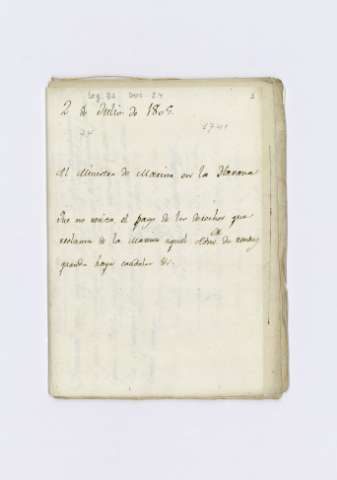 Leg. 32 Doc. 24
2 de Julio de 1805.
24
Al Ministro de Marina en la Havana
Que no revise el pago de los derechos que
reclama de la Marina aquel Admor. de rentas
quando haya caudales &c.